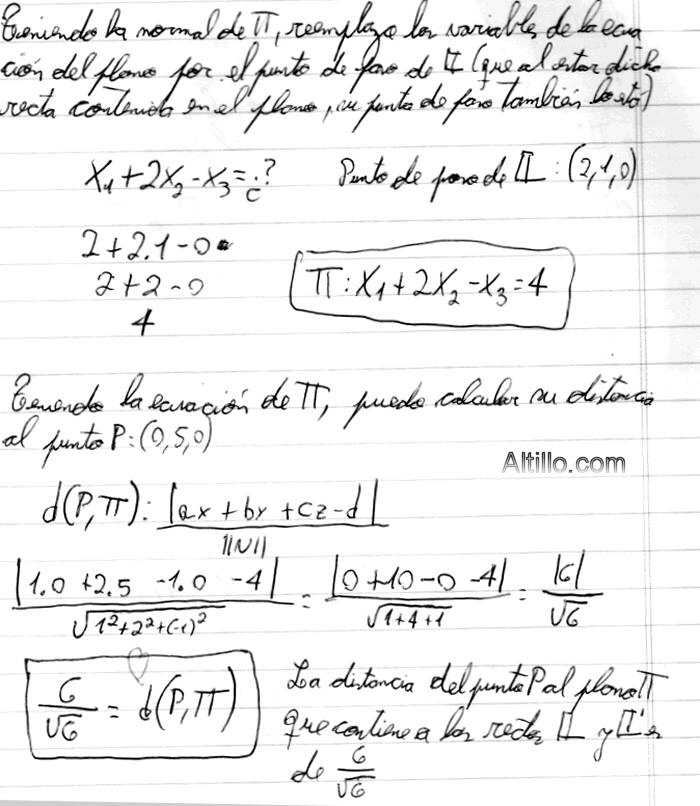 Teniendo la normal de π, reemplazo las variables de la ecua
ción del plano por el punto de paso de 𝕃 (que al estar dicha
recta contenida en el plano, su punto de paso también lo está)
x₁+2x₂-x₃=¿? Punto de paso de 𝕃: (2,1,0)
c
2+2.1-0
2+2-0
4
π: x₁+2x₂-x₃=4
Teniendo la ecuación de π, puedo calcular su distancia
al punto P:(0,5,0)
Altillo.com
d(P,π): |ax+by+cz-d| / ||N||
|1.0+2.5-1.0-4| / √(1²+2²+(-1)²) = |0+10-0-4| / √(1+4+1) = |6| / √6
6/√6 = d(P,π)
La distancia del punto P al plano π
que contiene a las rectas 𝕃 y 𝕃' es
de 6/√6